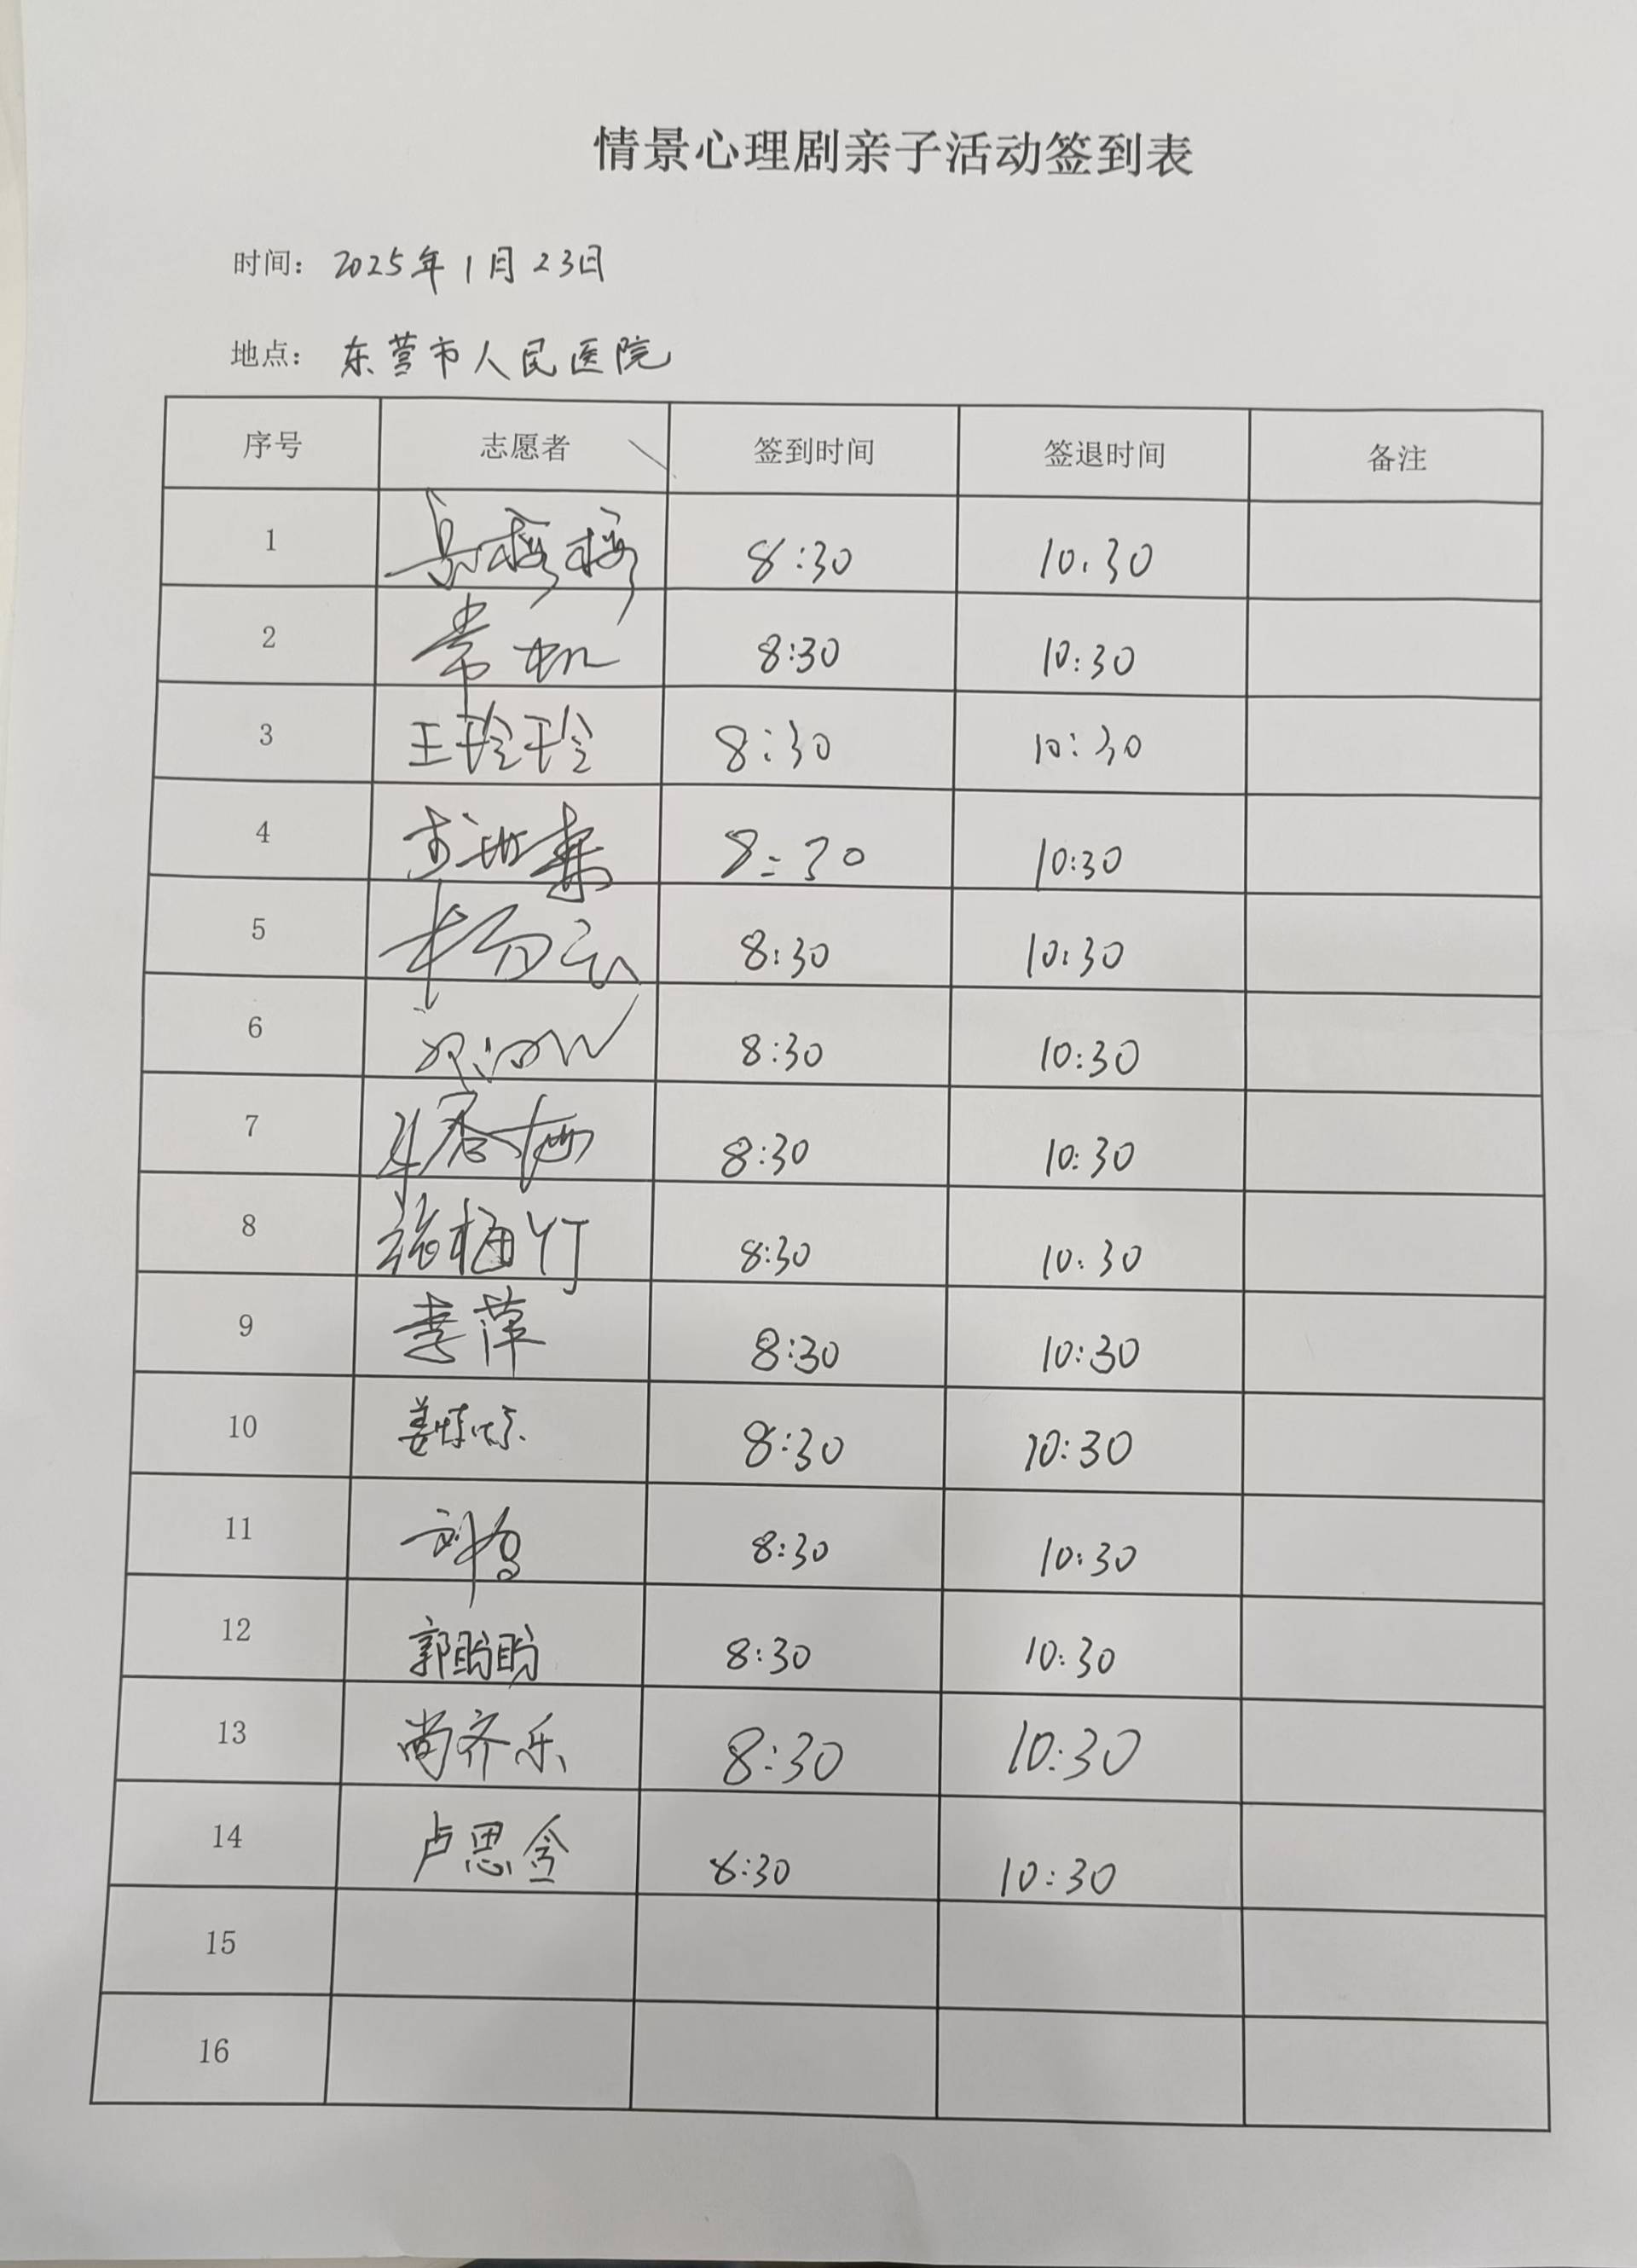 情景心理剧亲子活动签到表
时间：2025年1月23日
地点：东营市人民医院
序号 志愿者 签到时间 签退时间 备注
1 8:30 10:30
2 常帆 8:30 10:30
3 王玲玲 8:30 10:30
4 8:30 10:30
5 8:30 10:30
6 8:30 10:30
7 8:30 10:30
8 梅竹 8:30 10:30
9 李萍 8:30 10:30
10 姜 8:30 10:30
11 刘 8:30 10:30
12 郭盼盼 8:30 10:30
13 尚齐乐 8:30 10:30
14 卢思含 8:30 10:30
15
16